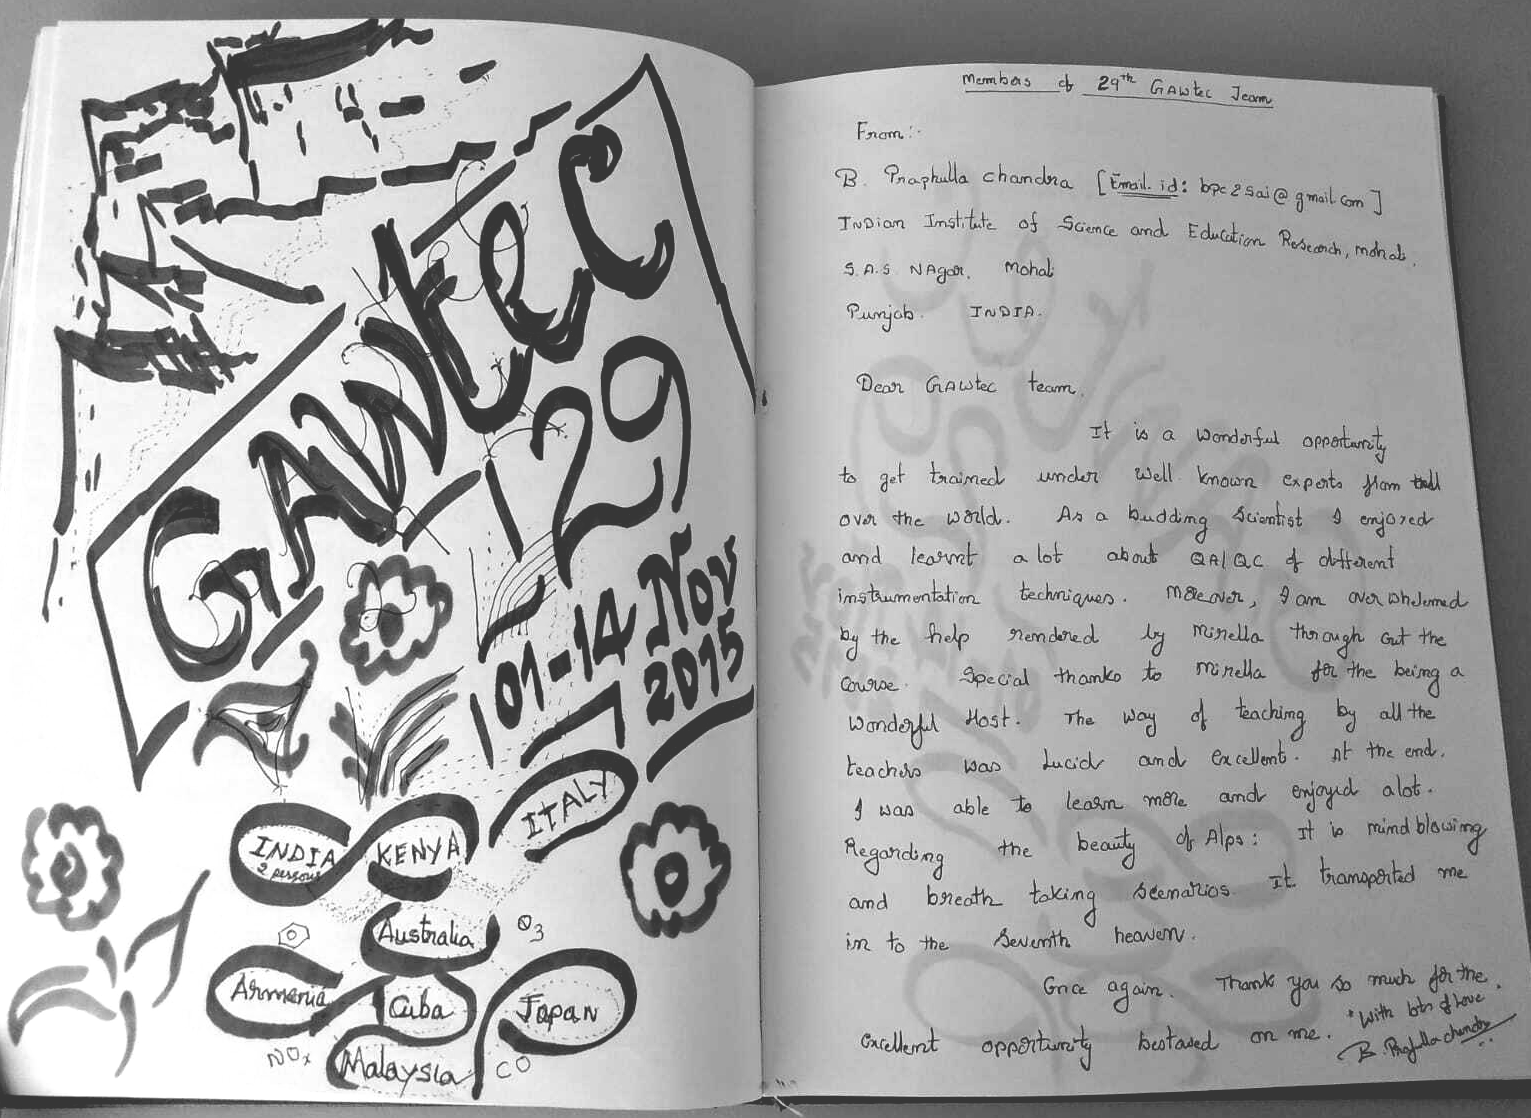 GAWTEC
29
01-14 Nov
2015
ITALY
INDIA
2 persons
KENYA
Australia
O3
Armenia
Cuba
Japan
NOx
Malaysia
CO
Members of 29th GAWtec Team
From:-
B. Praphulla chandra [Email.id: bpc2sai@gmail.com]
INDian Institute of Science and Education Research, mohali.
S.A.S. NAgar, Mohali
Punjab. INDIA.
Dear GAWtec team,
It is a wonderful opportunity
to get trained under well known experts from all
over the world. As a budding Scientist I enjoyed
and learnt a lot about QA/QC of different
instrumentation techniques. Moreover, I am overwhelemed
by the help rendered by Mirella through out the
course. Special thanks to Mirella for the being a
wonderful Host. The way of teaching by all the
teachers was Lucid and excellent. At the end,
I was able to learn more and enjoyed a lot.
Regarding the beauty of Alps: It is mind blowing
and breath taking scenarios. It transported me
in to the seventh heaven.
Once again. Thank you so much for the
excellent opportunity bestowed on me.
"With lots of Love
B. Praphulla chandra